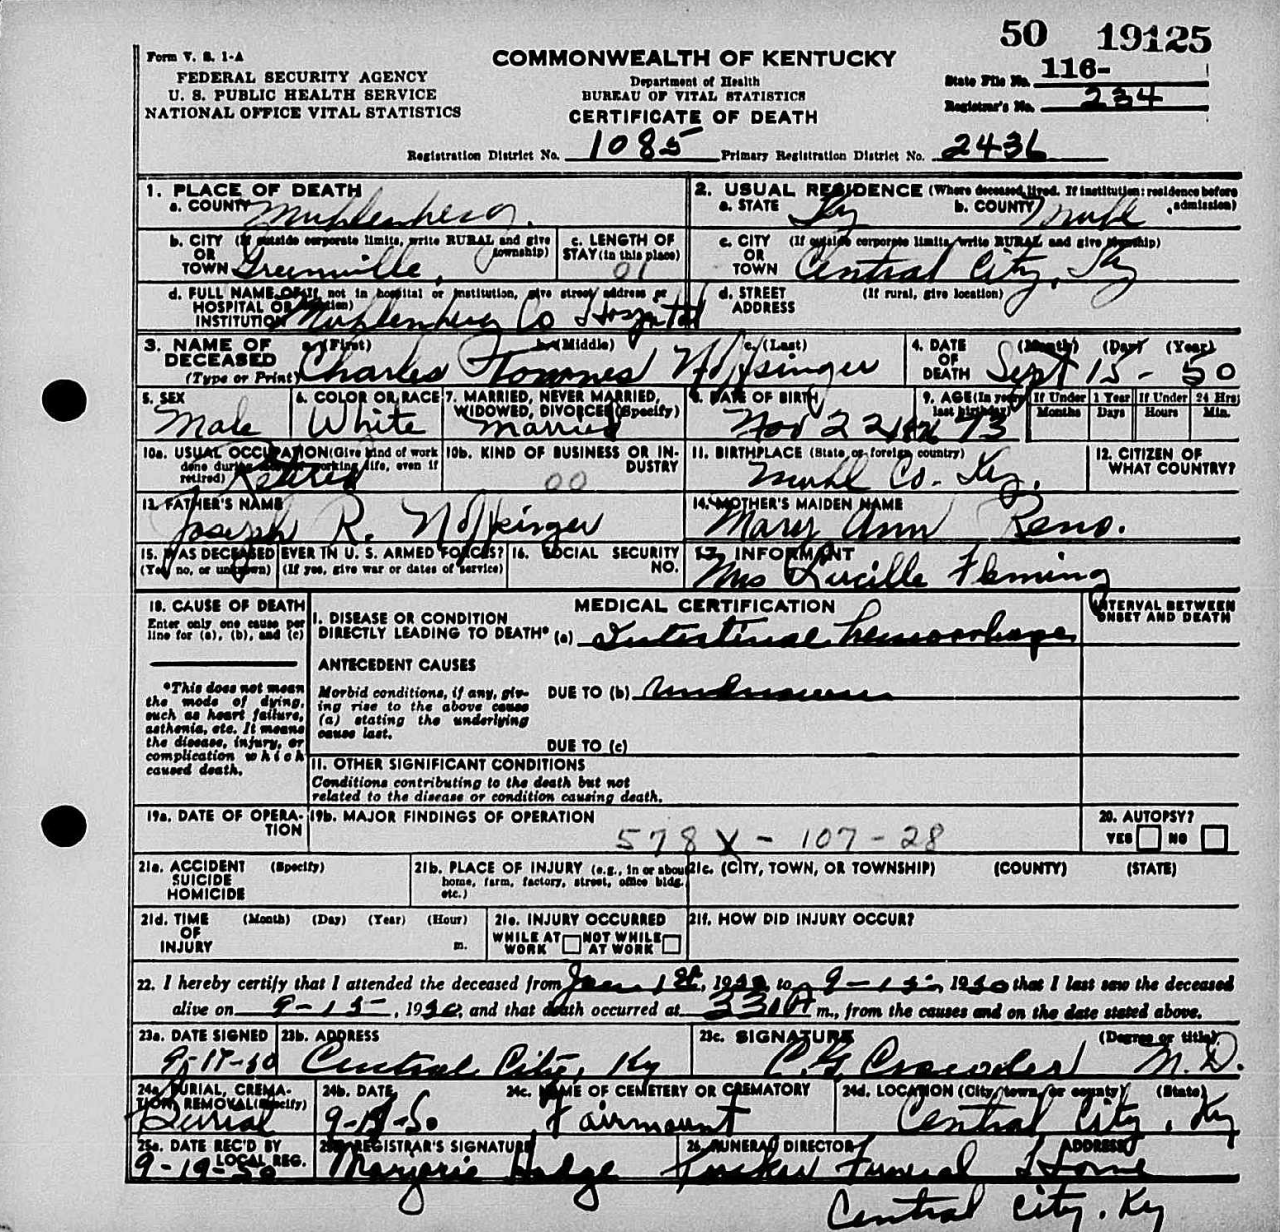 50 19125
Form V. S. 1-A
COMMONWEALTH OF KENTUCKY
FEDERAL SECURITY AGENCY
U. S. PUBLIC HEALTH SERVICE
NATIONAL OFFICE VITAL STATISTICS
Department of Health
BUREAU OF VITAL STATISTICS
CERTIFICATE OF DEATH
State File No. 116-
Registrar's No. 234
Registration District No. 1085 Primary Registration District No. 2436
1. PLACE OF DEATH
a. COUNTY Muhlenberg.
2. USUAL RESIDENCE (Where deceased lived. If institution: residence before admission)
a. STATE Ky b. COUNTY Muhl
b. CITY (If outside corporate limits, write RURAL and give township)
OR
TOWN Greenville,
c. LENGTH OF
STAY (in this place)
01
c. CITY (If outside corporate limits, write RURAL and give township)
OR
TOWN Central City, Ky
d. FULL NAME OF (If not in hospital or institution, give street address or location)
HOSPITAL OR
INSTITUTION Muhlenberg Co Hospital
d. STREET (If rural, give location)
ADDRESS
3. NAME OF DECEASED
(Type or Print)
a. (First) b. (Middle) c. (Last)
Charles Townes Noffsinger
4. DATE OF DEATH (Month) (Day) (Year)
Sept 15- 50
5. SEX
Male
6. COLOR OR RACE
White
7. MARRIED, NEVER MARRIED,
WIDOWED, DIVORCED (Specify)
Married
8. DATE OF BIRTH
Nov 22 73
9. AGE (In years last birthday)
If Under 1 Year
Months Days
If Under 24 Hrs
Hours Min.
10a. USUAL OCCUPATION (Give kind of work done during most of working life, even if retired)
Retired
10b. KIND OF BUSINESS OR INDUSTRY
00
11. BIRTHPLACE (State or foreign country)
Muhl Co. Ky.
12. CITIZEN OF
WHAT COUNTRY?
13. FATHER'S NAME
Joseph R. Noffsinger
14. MOTHER'S MAIDEN NAME
Mary Ann Reno.
15. WAS DECEASED EVER IN U. S. ARMED FORCES?
(Yes, no, or unknown) (If yes, give war or dates of service)
16. SOCIAL SECURITY
NO.
17. INFORMANT
Mrs Lucille Fleming
18. CAUSE OF DEATH
Enter only one cause per
line for (a), (b), and (c)
*This does not mean
the mode of dying,
such as heart failure,
asthenia, etc. It means
the disease, injury, or
complication which
caused death.
MEDICAL CERTIFICATION
INTERVAL BETWEEN
ONSET AND DEATH
I. DISEASE OR CONDITION
DIRECTLY LEADING TO DEATH* (a) Intestinal hemorrhage
ANTECEDENT CAUSES
Morbid conditions, if any, giv-
ing rise to the above cause
(a) stating the underlying
cause last.
DUE TO (b) unknown
DUE TO (c)
II. OTHER SIGNIFICANT CONDITIONS
Conditions contributing to the death but not
related to the disease or condition causing death.
19a. DATE OF OPERA-
TION
19b. MAJOR FINDINGS OF OPERATION
578 X - 107-28
20. AUTOPSY?
YES NO
21a. ACCIDENT (Specify)
SUICIDE
HOMICIDE
21b. PLACE OF INJURY (e.g., in or about
home, farm, factory, street, office bldg.
etc.)
21c. (CITY, TOWN, OR TOWNSHIP) (COUNTY) (STATE)
21d. TIME (Month) (Day) (Year) (Hour)
OF
INJURY m.
21e. INJURY OCCURRED
WHILE AT WORK NOT WHILE AT WORK
21f. HOW DID INJURY OCCUR?
22. I hereby certify that I attended the deceased from Jan 1st, 19 to 9-15, 1950 that I last saw the deceased
alive on 9-15-, 1950, and that death occurred at 330A m., from the causes and on the date stated above.
23a. DATE SIGNED
23b. ADDRESS
Central City, Ky
23c. SIGNATURE (Degree or title)
C. G. Crowder M.D.
24a. BURIAL, CREMA-
TION, REMOVAL (Specify)
Burial
24b. DATE
24c. NAME OF CEMETERY OR CREMATORY
Fairmount
24d. LOCATION (City, town, or county) (State)
Central City, Ky
25a. DATE REC'D BY
LOCAL REG.
9-19-50
25b. REGISTRAR'S SIGNATURE
Marjorie Hodge
26. FUNERAL DIRECTOR ADDRESS
Tucker Funeral Home
Central City, Ky